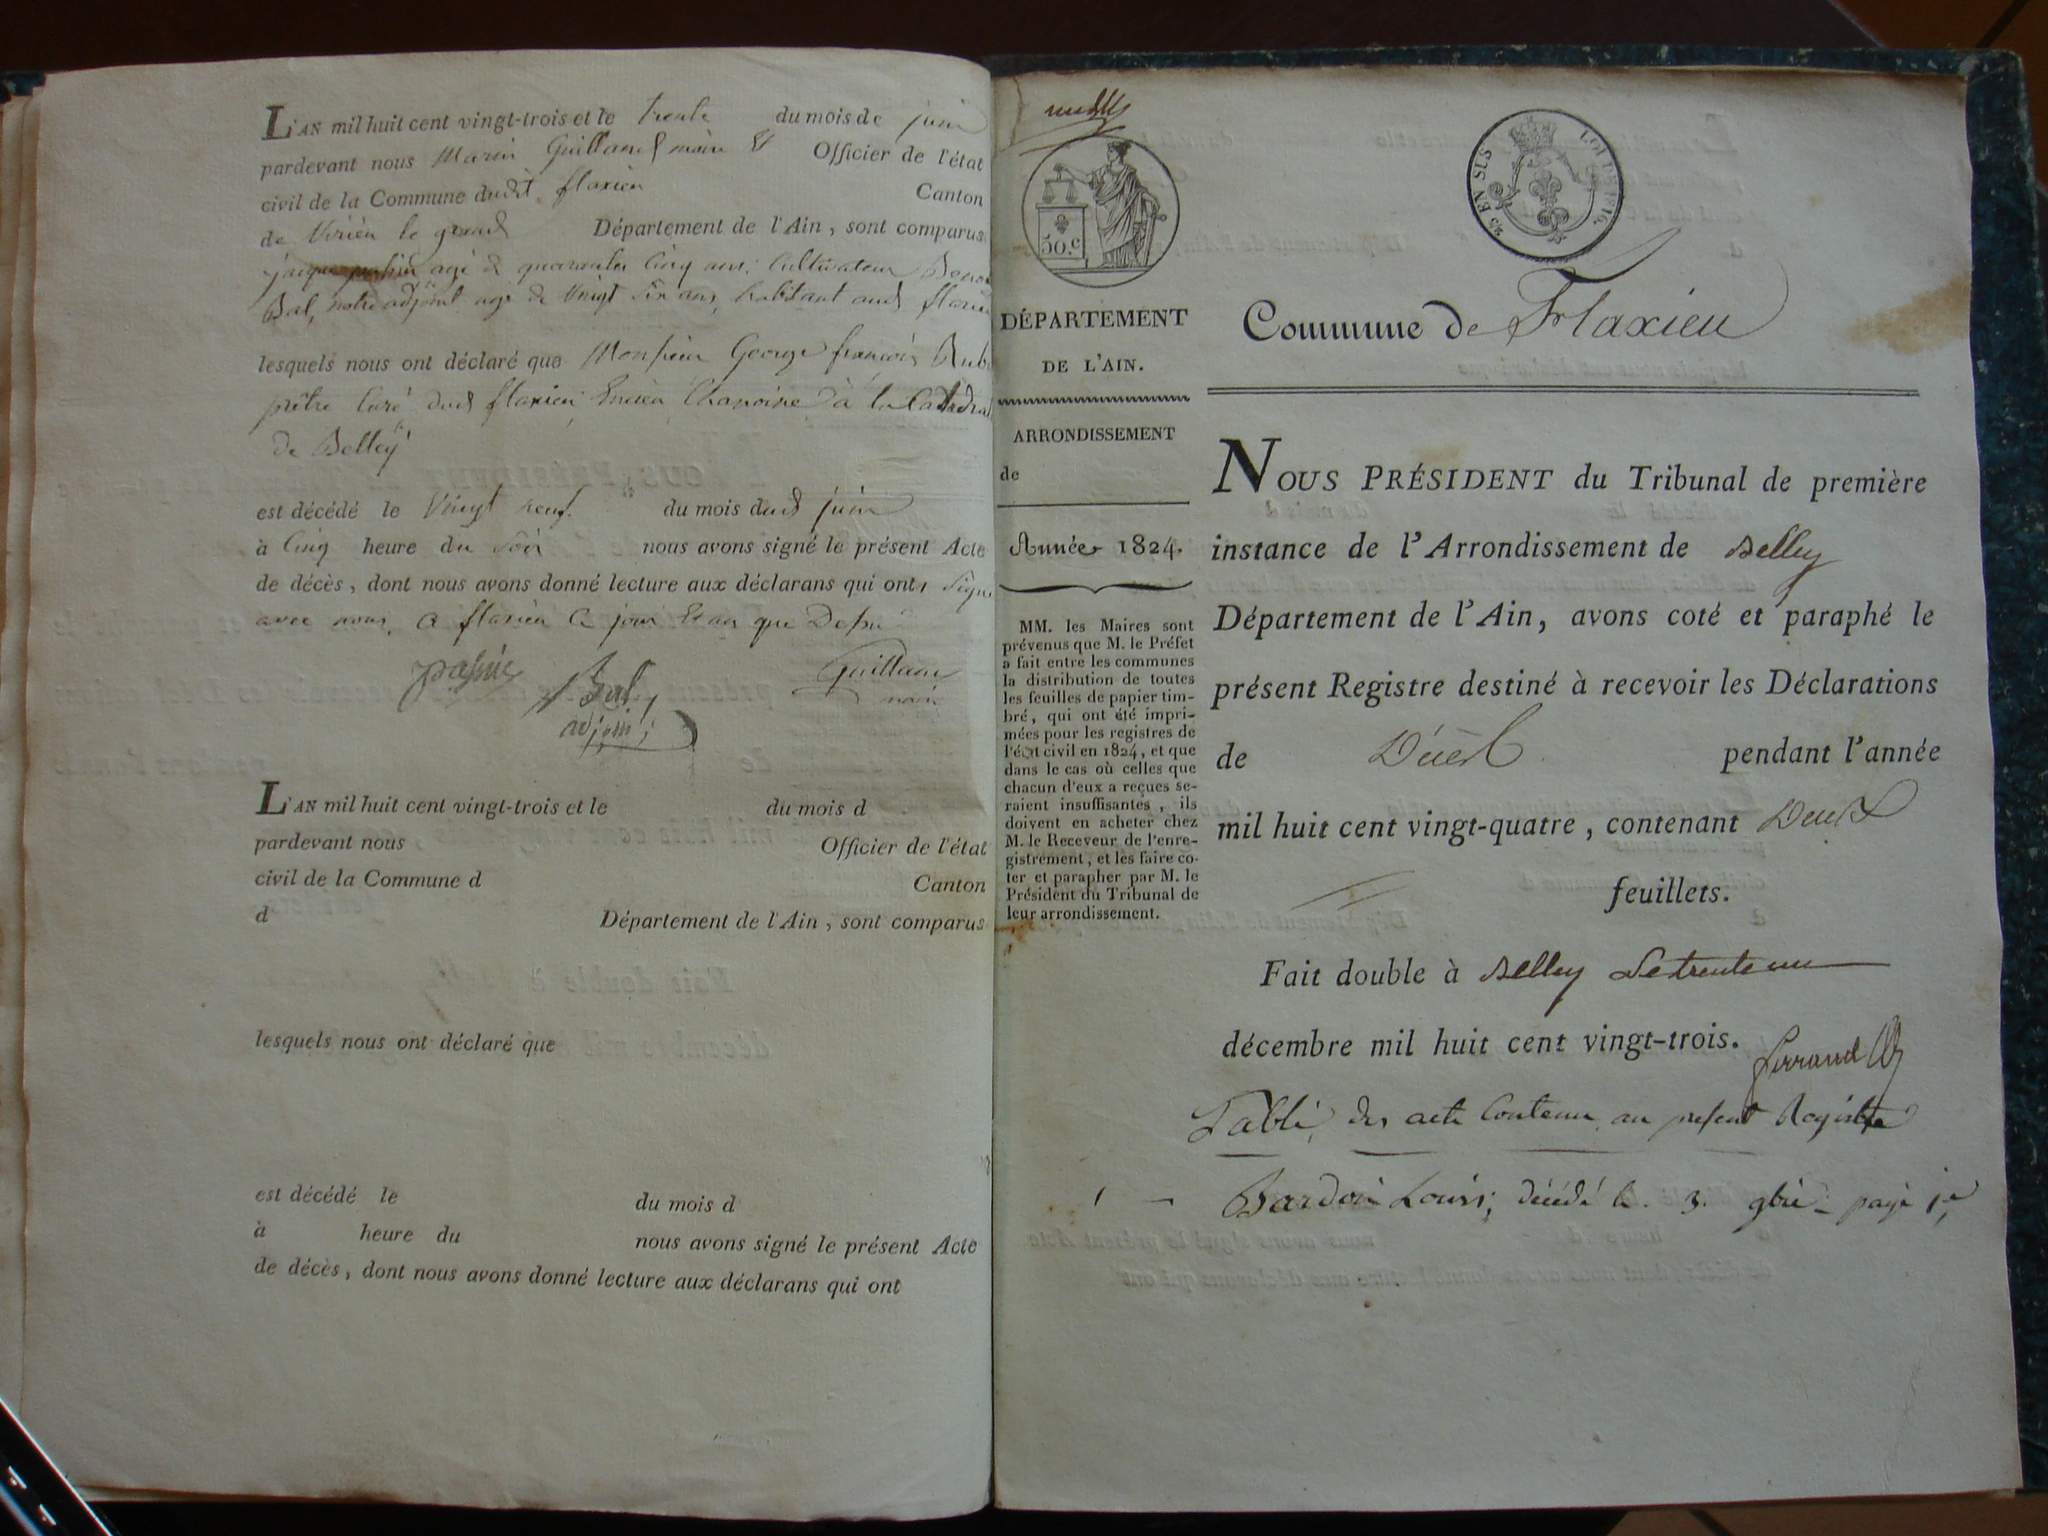 L'AN mil huit cent vingt-trois et le trente du mois de juin
pardevant nous Marin Guilland maire & Officier de l'état
civil de la Commune dudit flaxieu Canton
de Virieu le grand Département de l'Ain, sont comparus
jacques agé de quarante cinq ans, Cultivateur
Bal, notre adjoint agé de Vingt six ans, habitant aud flaxieu
lesquels nous ont déclaré que Monsieur George françois
prêtre Curé dud flaxieu, Encien Chanoine à la Catédral
de Belley
est décédé le Vingt neuf du mois dud juin
à Cinq heure du soir nous avons signé le présent Acte
de décès, dont nous avons donné lecture aux déclarans qui ont signé
avec nous, a flaxieu Ce jour & an que Dessu
Bal Guilland
adjoint maire
L'AN mil huit cent vingt-trois et le du mois d
pardevant nous Officier de l'état
civil de la Commune d Canton
d Département de l'Ain, sont comparus
lesquels nous ont déclaré que
est décédé le du mois d
à heure du nous avons signé le présent Acte
de décès, dont nous avons donné lecture aux déclarans qui ont
50.c
25 EN SUS LOI DE 1816
DÉPARTEMENT
DE L'AIN.
ARRONDISSEMENT
de
Année 1824.
MM. les Maires sont
prévenus que M. le Préfet
a fait entre les communes
la distribution de toutes
les feuilles de papier tim-
bré, qui ont été impri-
mées pour les registres de
l'état civil en 1824, et que
dans le cas où celles que
chacun d'eux a reçues se-
raient insuffisantes, ils
doivent en acheter chez
M. le Receveur de l'enre-
gistrement, et les faire co-
ter et parapher par M. le
Président du Tribunal de
leur arrondissement.
Commune de Flaxieu
NOUS PRÉSIDENT du Tribunal de première
instance de l'Arrondissement de Belley
Département de l'Ain, avons coté et paraphé le
présent Registre destiné à recevoir les Déclarations
de Décès pendant l'année
mil huit cent vingt-quatre, contenant Deux
feuillets.
Fait double à Belley Le trente un
décembre mil huit cent vingt-trois.
Ferrand
Table des acte Contenu au present Registre
1 Bardon Louis, décédé le 3 9bre page 1e